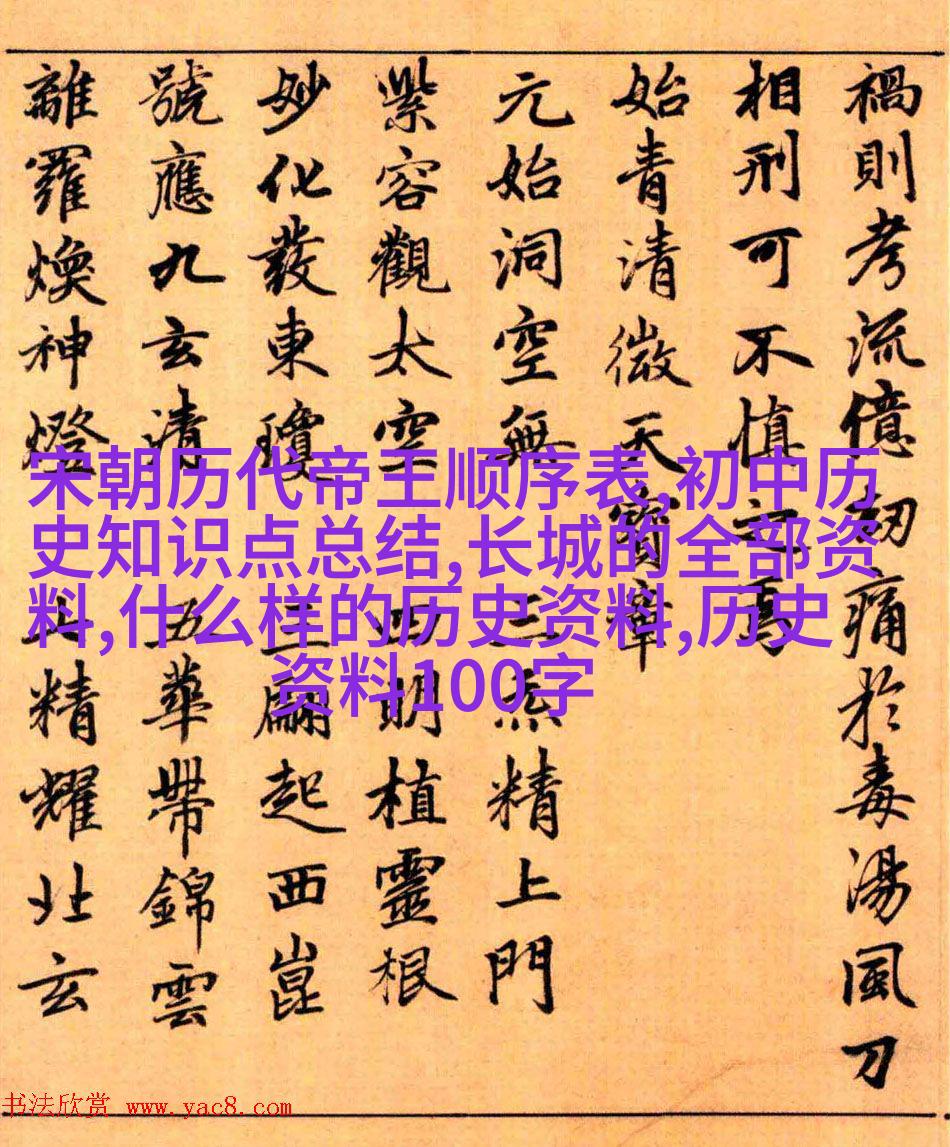 禍則考流億劫痛於毒湯風刀
相刑可不慎之焉
始青清微天寶章
元始洞空無三炁精上門
紫容觀太空四明植靈根
妙化發東瓊三翮起西崑
號應九玄清五華帶錦雲
離羅煥神燈五精耀北玄
宋朝历代帝王顺序表,初中历
史知识点总结,长城的全部资
料,什么样的历史资料,历史
资料100字
书法欣赏 www.yac8.com